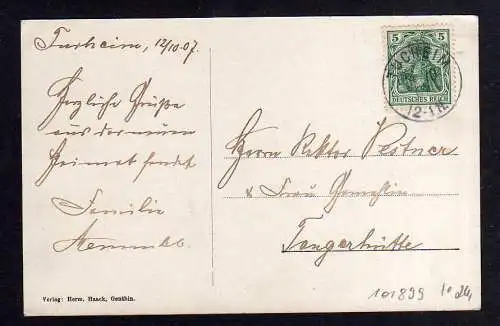 12/10.07.
Herzliche Grüße
aus der neuen
Heimat sendet
Familie
Verlag: Herm. Haack, Genthin.
5 5
DEUTSCHES REICH
12-1N.
Herrn Rektor
& Frau Gemahlin
Tangerhütte
101899